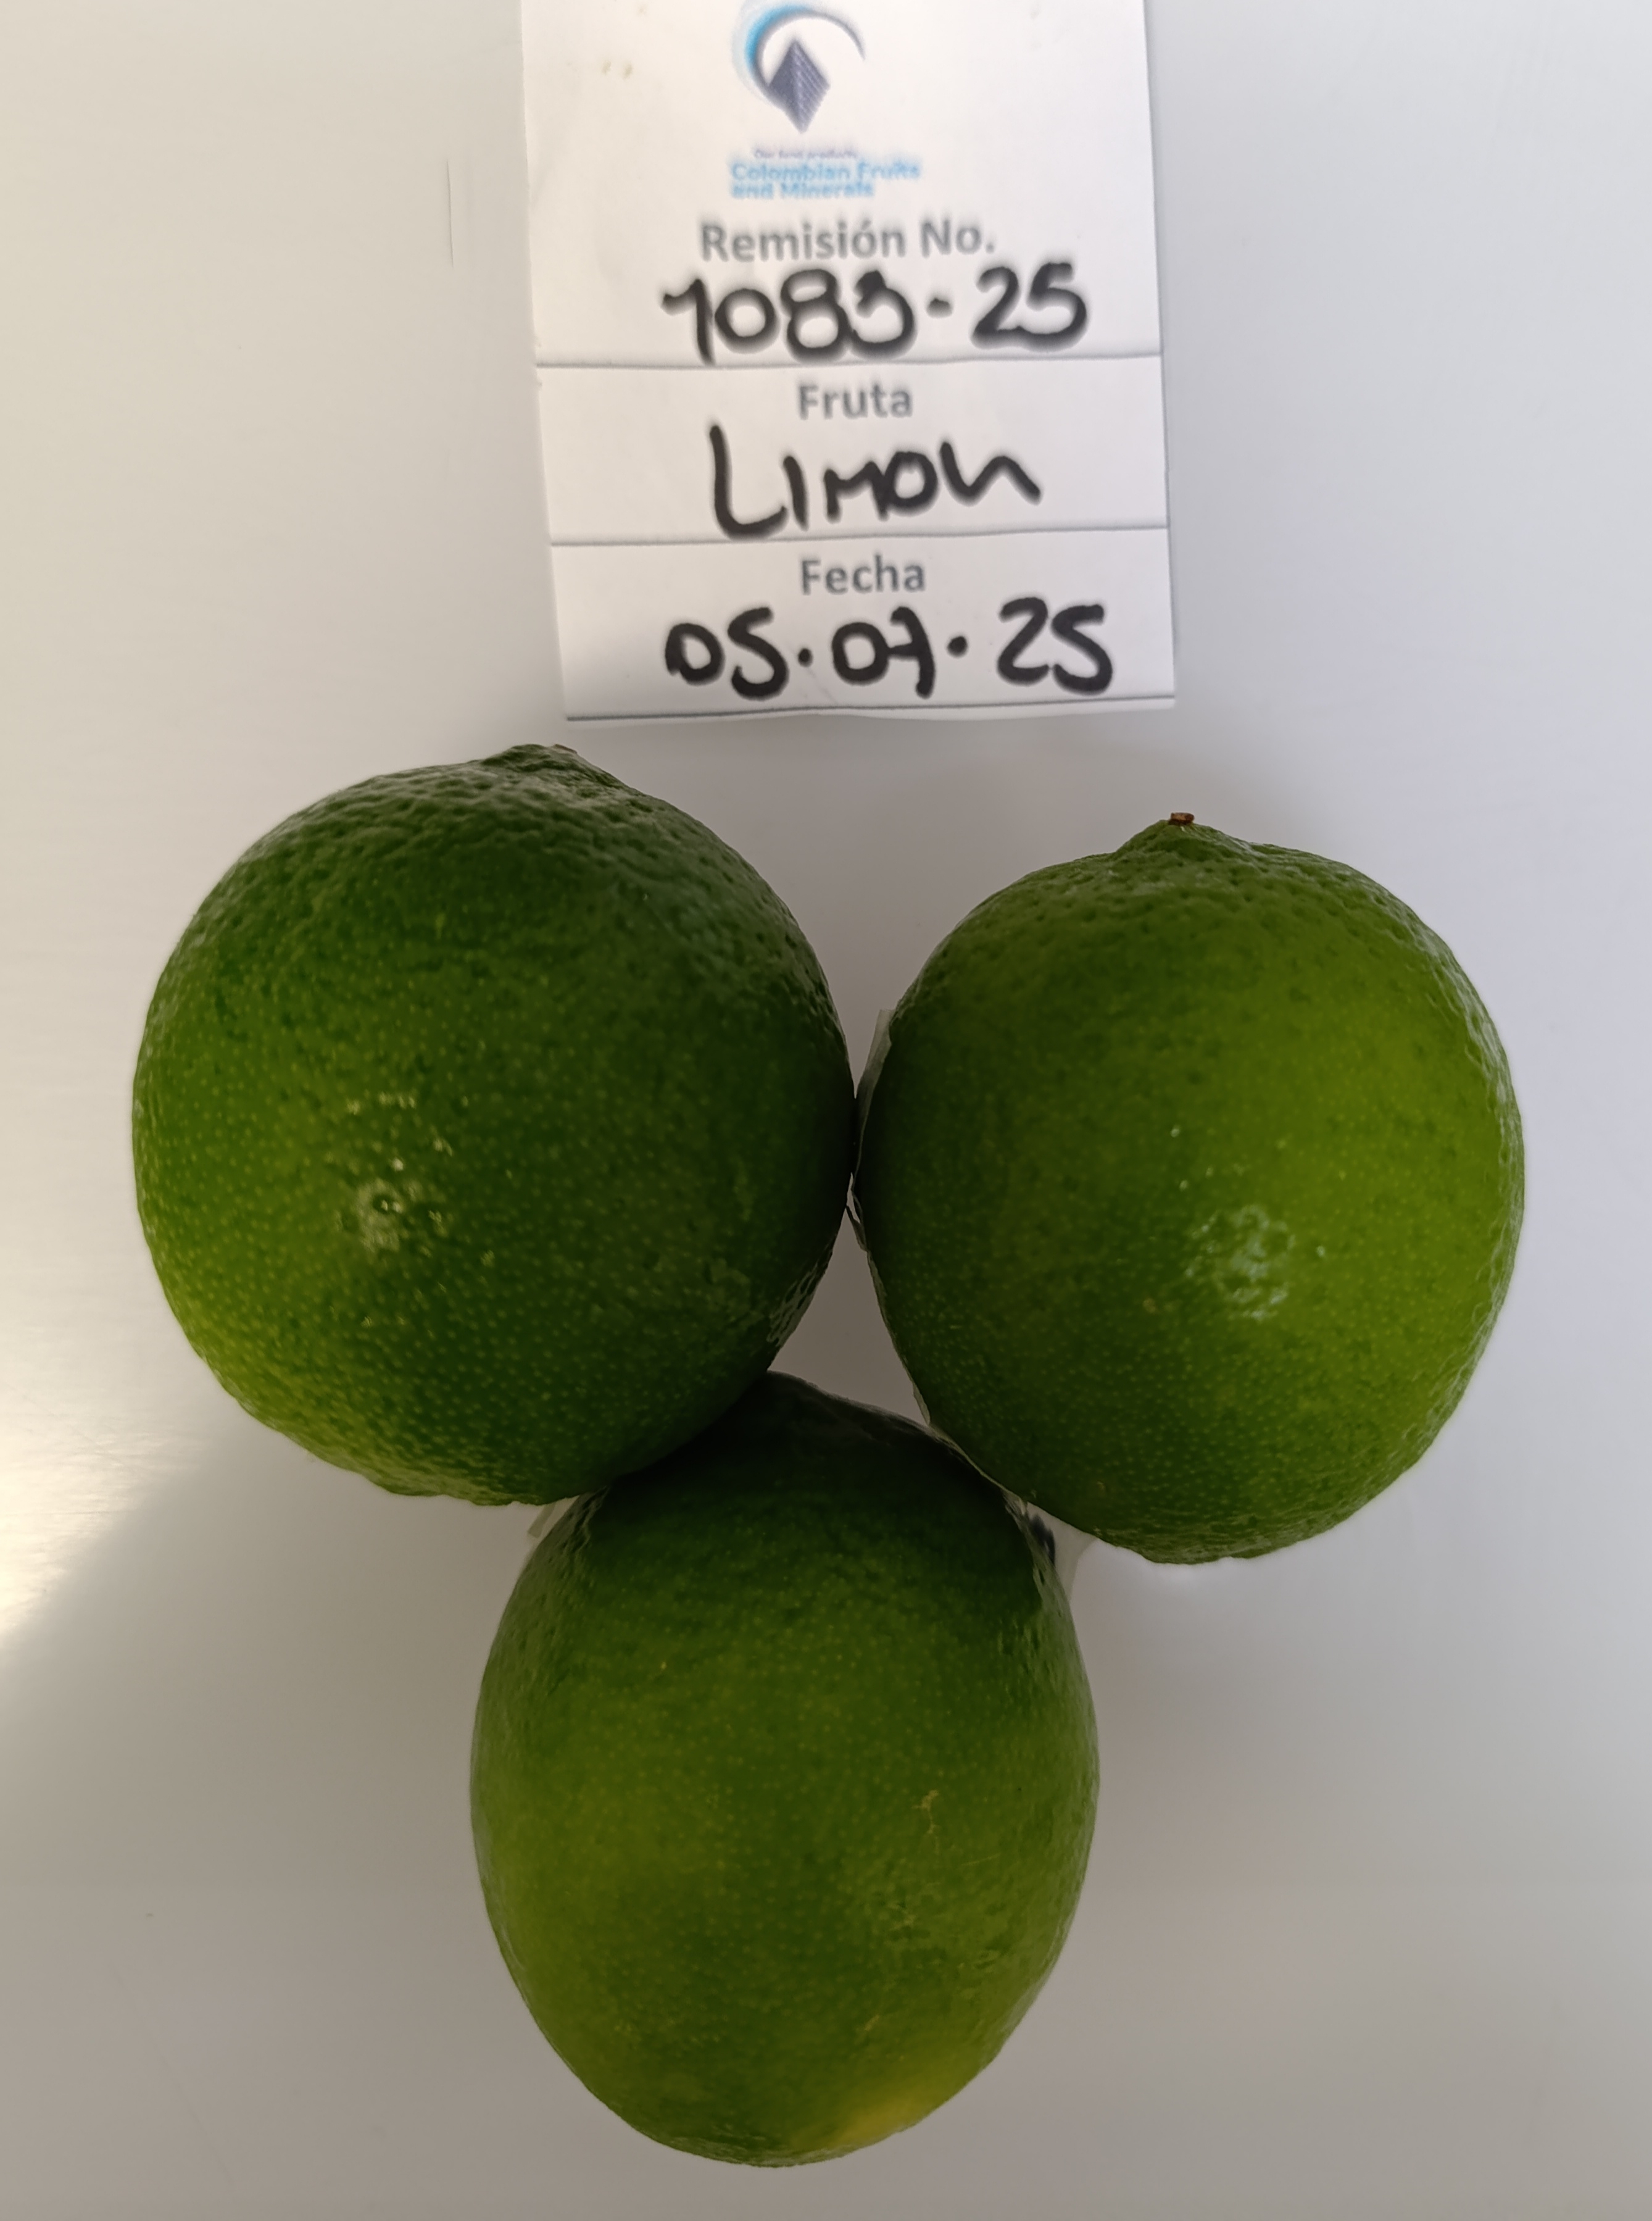 Our best products
Colombian Fruits
and Minerals
Remisión No.
1083-25
Fruta
LIMON
Fecha
05.07.25